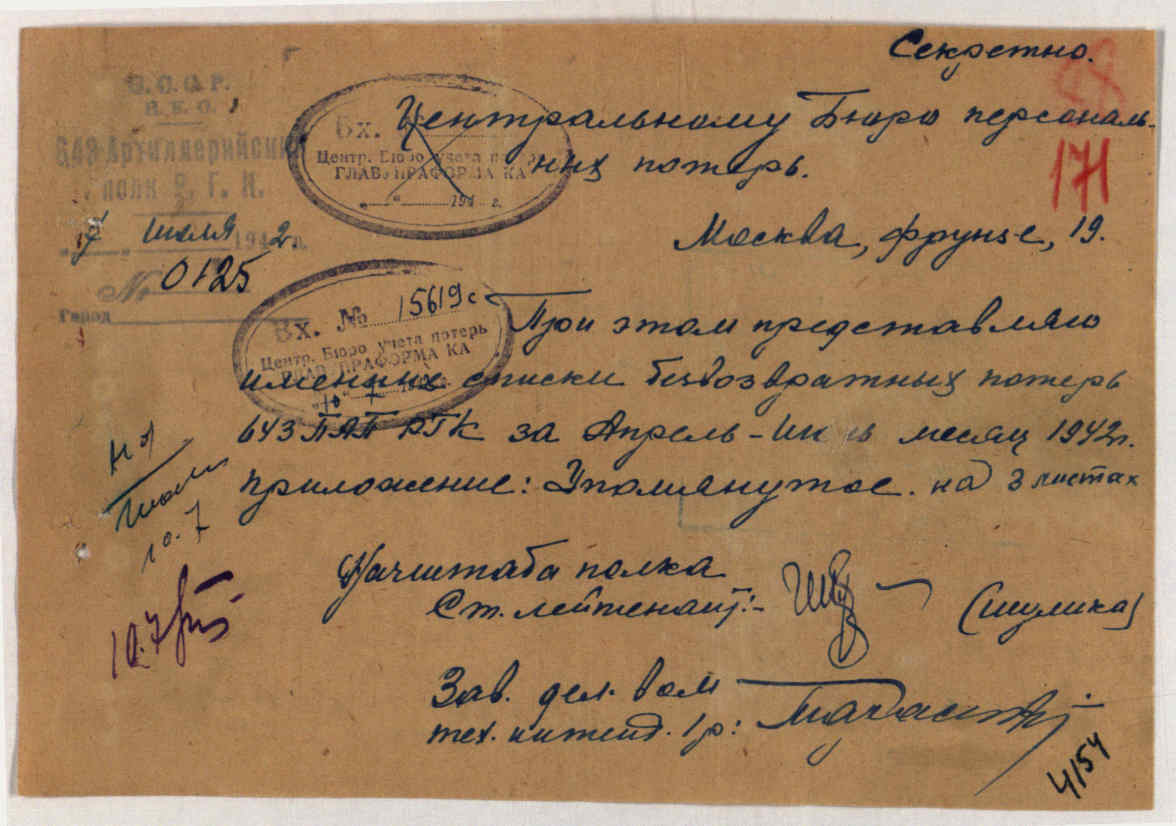 Секретно.
С.С.С.Р.
Н.К.О.
643 Артиллерийский
полк Р. Г. К.
7 июля 1942 г.
№ 0125
Город
Вх.
Центр. Бюро учета потерь
ГЛАВУПРАФОРМА КА
194 г.
Центральному Бюро персональ-
ных потерь.
171
Москва, Фрунзе, 19.
Вх. № 15619с
Центр. Бюро учета потерь
ГЛАВУПРАФОРМА КА
"10" 7
При этом представляю
именных списки безвозвратных потерь
643 ПАП РГК за Апрель-Июнь месяц 1942г.
приложение: Упомянутое. на 3 листах
10.7
10.7
Начштаба полка
Ст. лейтенант:- (Шулика)
Зав. дел-вом
тех. интенд. 1р:
4154